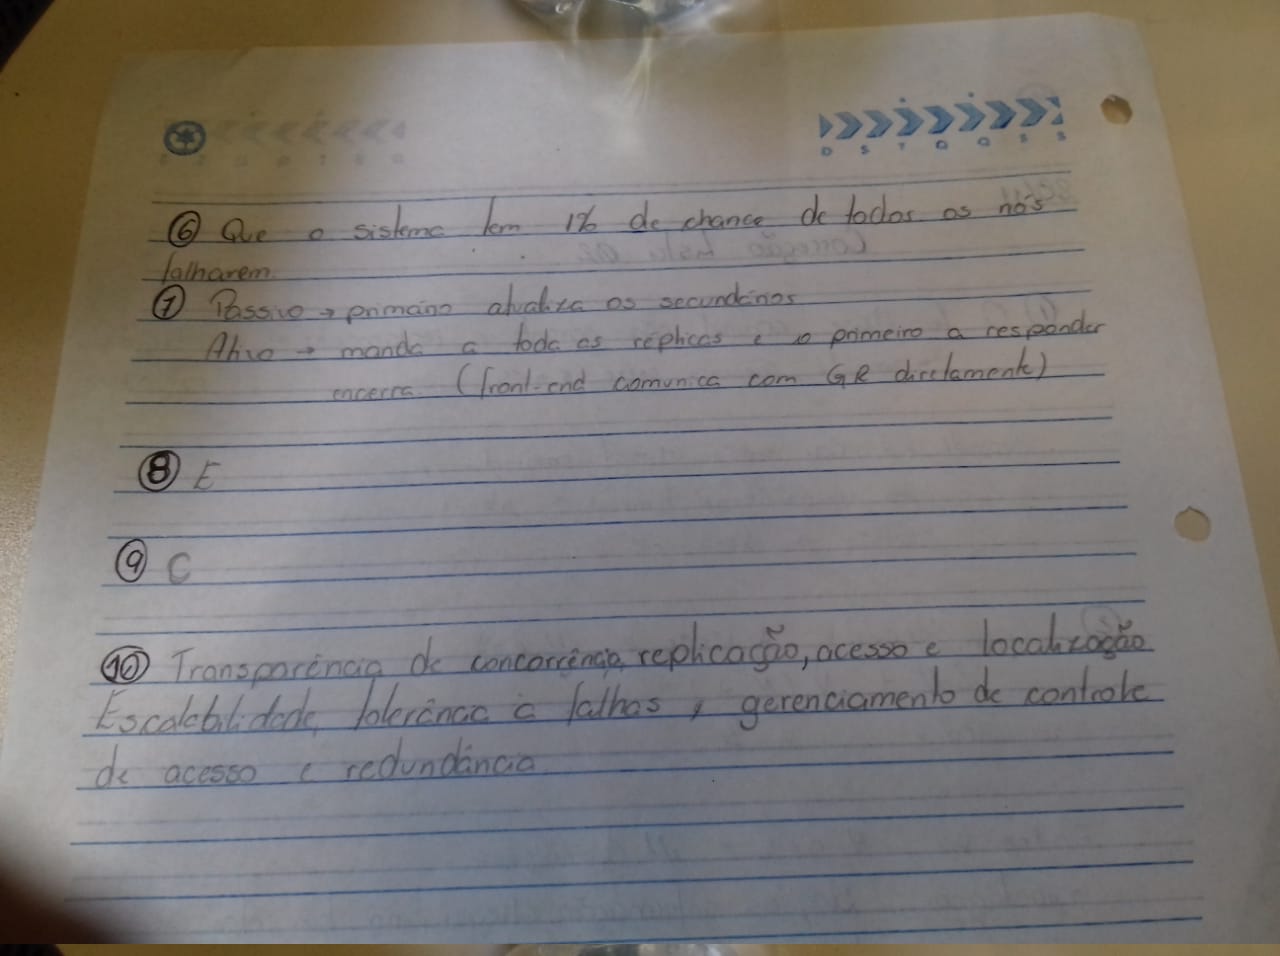 D S T Q Q S S
⑥ Que o sistema tem 1% de chance de todos os nós
falharem.
⑦ Passivo → primário atualiza os secundários
Ativo → manda a toda as réplicas e o primeiro a responder
encerra. (front-end comunica com GR diretamente)
⑧ E
⑨ C
⑩ Transparência de concorrência, replicação, acesso e localização
Escalabilidade, tolerância à falhas, gerenciamento de controle
de acesso e redundância